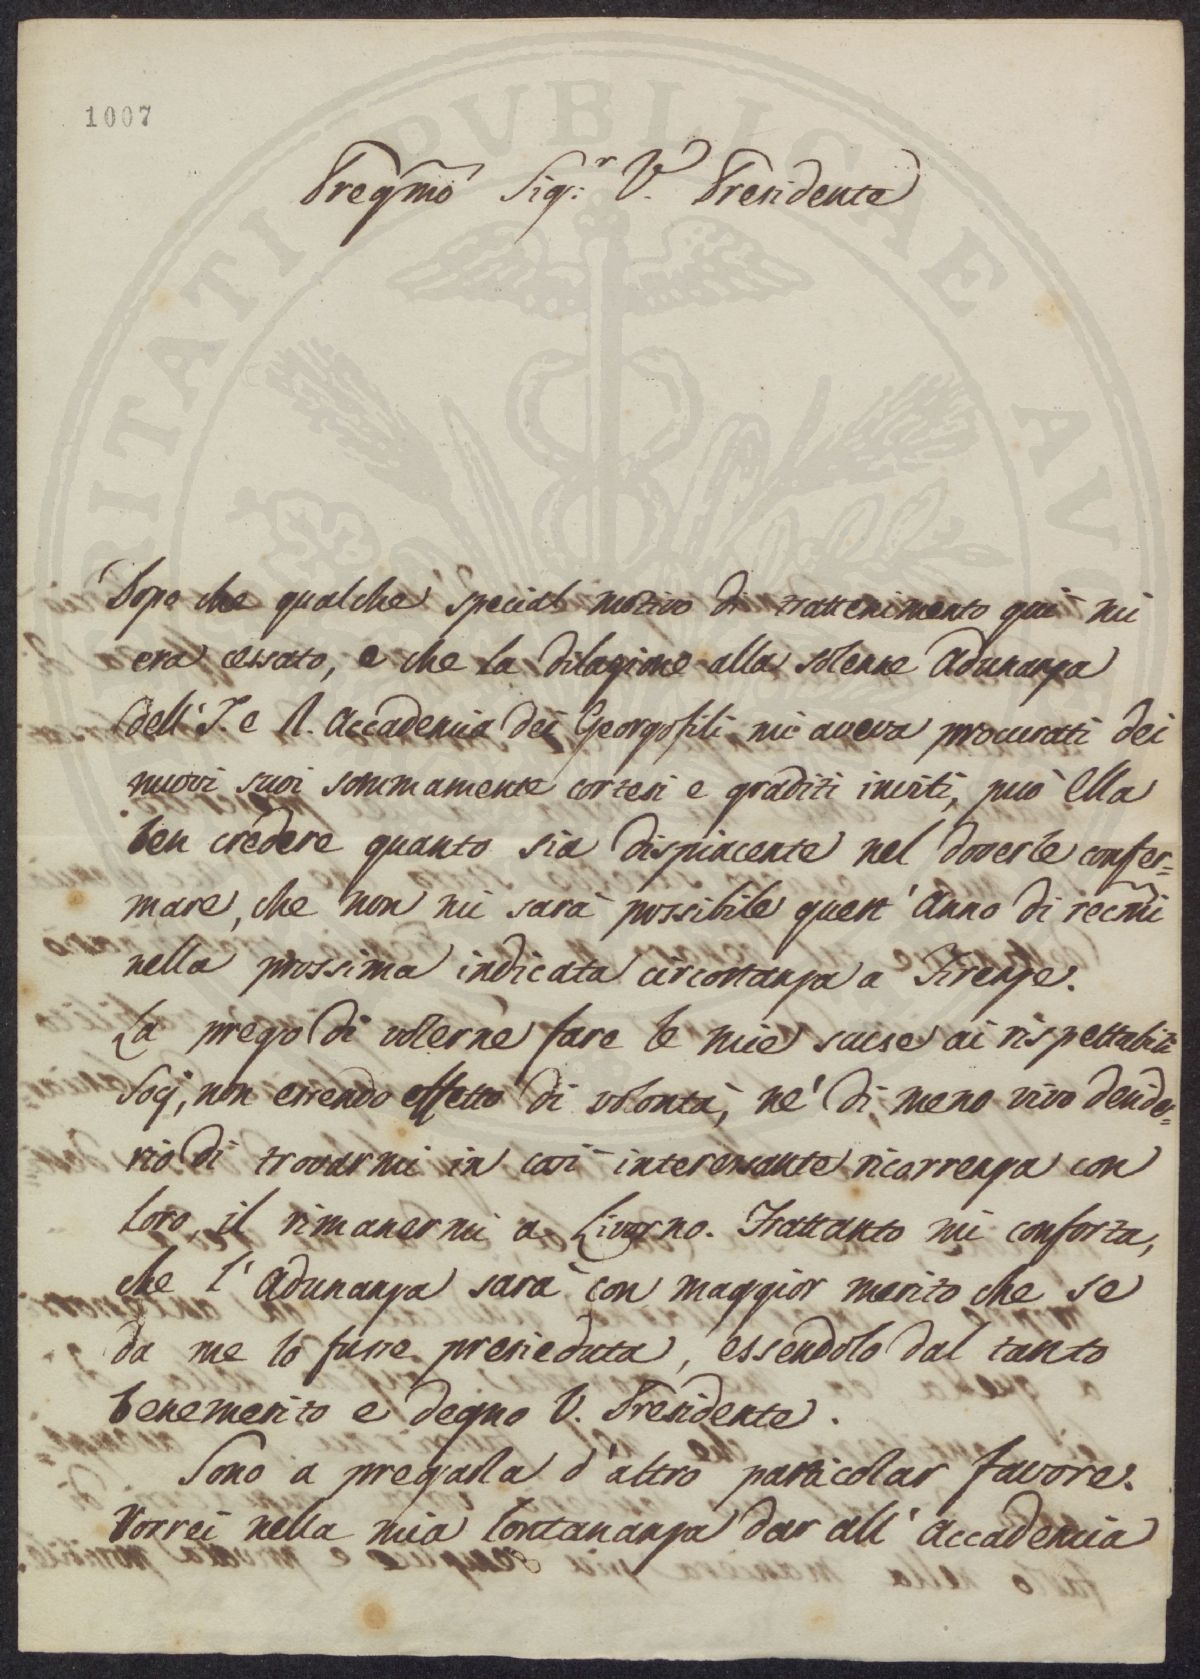 1007
Pregmo Sigr. V. Presidente
Dopo che qualche special motivo di trattenimento quì mi
era cessato, e che la dilazione alla solenne Adunanza
dell'I. e R. Accademia dei Georgofili mi aveva procurati dei
nuovi suoi sommamente cortesi e graditi inviti, può Ella
ben credere quanto sia dispiacente nel doverle confer=
mare, che non mi sarà possibile quest'Anno di recarmi
nella prossima indicata circostanza a Firenze.
La prego di volerne fare le mie scuse ai rispettabili
Socj, non essendo effetto di volontà, nè di meno vivo deside=
rio di trovarmi in così interessante ricorrenza con
loro, il rimanermi a Livorno. Frattanto mi conforta,
che l'Adunanza sarà con maggior merito che se
da me lo fusse presieduta, essendolo dal tanto
benemerito e degno V. Presidente.
Sono a pregarla d'altro particolar favore.
Vorrei nella mia lontananza dar all'Accademia